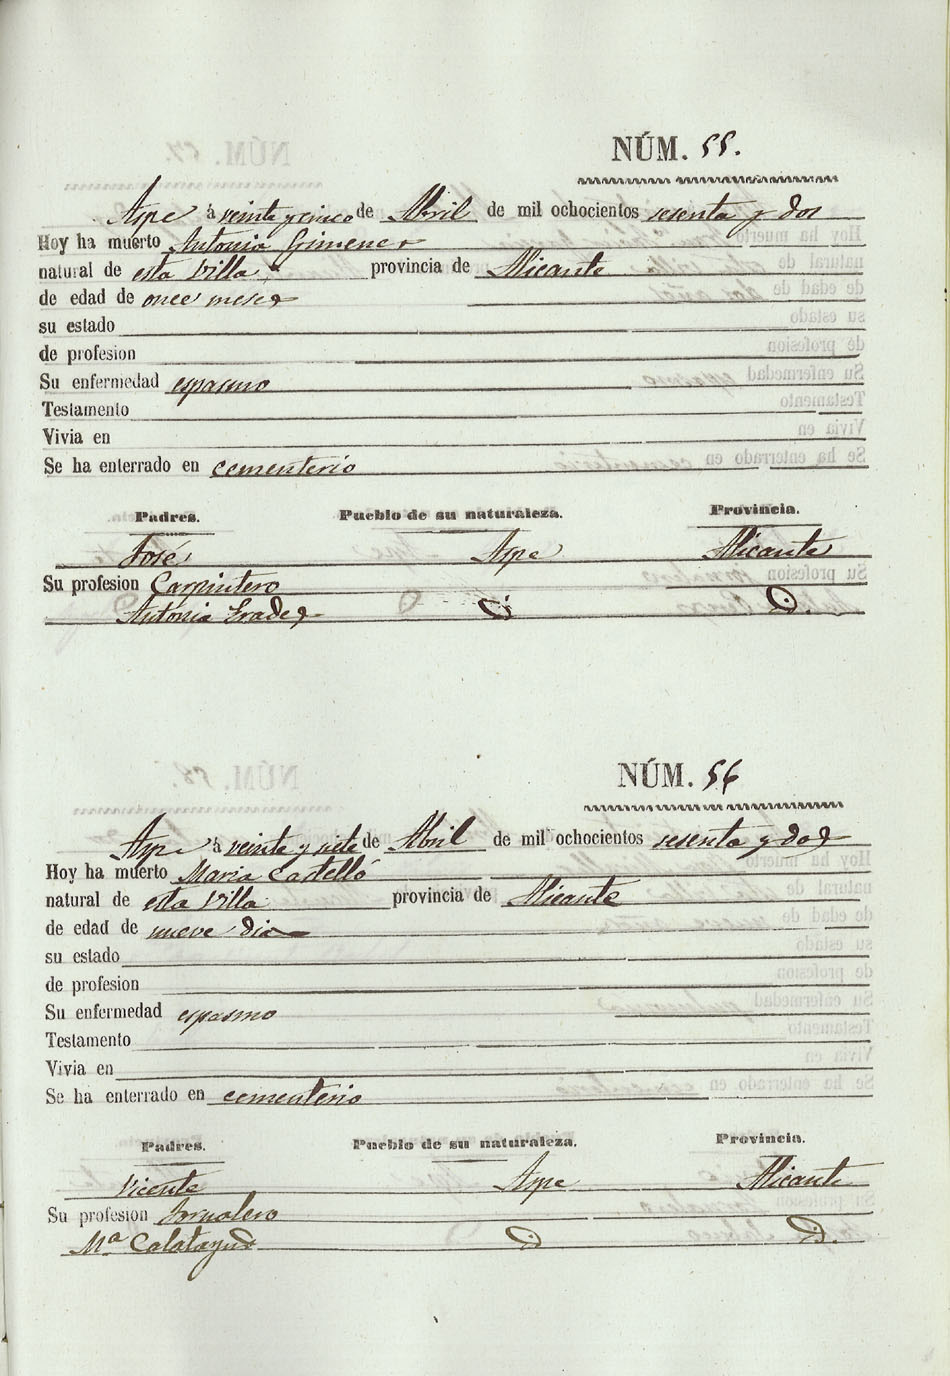 NÚM. 55.
Aspe à veinte y cinco de Abril de mil ochocientos sesenta y dos
Hoy ha muerto Antonia Gimenez
natural de esta Villa provincia de Alicante
de edad de once meses
su estado
de profesion
Su enfermedad espasmo
Testamento
Vivia en
Se ha enterrado en cementerio
Padres. Pueblo de su naturaleza. Provincia.
José Aspe Alicante
Su profesion Carpintero
Antonia Prades Id. Id.
NÚM. 56
Aspe à veinte y siete de Abril de mil ochocientos sesenta y dos
Hoy ha muerto Maria Castelló
natural de esta Villa provincia de Alicante
de edad de nueve dias
su estado
de profesion
Su enfermedad espasmo
Testamento
Vivia en
Se ha enterrado en cementerio
Padres. Pueblo de su naturaleza. Provincia.
Vicente Aspe Alicante
Su profesion Jornalero
Mª Calatayud Id. Id.